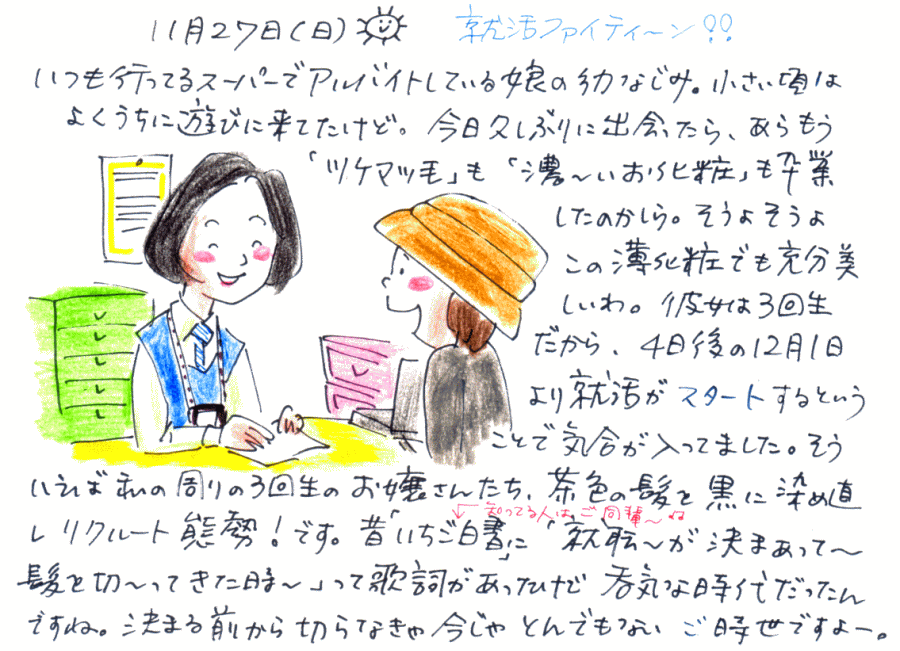 11月27日(日) 就活ファイティ〜ン!!
いつも行ってるスーパーでアルバイトしている娘の幼なじみ。小さい頃は
よくうちに遊びに来てたけど。今日久しぶりに出会ったら、あらもう
「ツケマツ毛」も「濃〜いお化粧」も卒業
したのかしら。そうよそうよ
この薄化粧でも充分美
しいわ。彼女は3回生
だから、4日後の12月1日
より就活がスタートするという
ことで気合が入ってました。そう
いえば私の周りの3回生のお嬢さんたち、茶色の髪を黒に染め直
しリクルート態勢!です。昔「いちご白書」に「就転〜が決まあって〜
知ってる人はご同輩〜ね
髪を切〜ってきた時〜」って歌詞があったけど呑気な時代だったん
ですね。決まる前から切らなきゃ今じゃとんでもないご時世ですよー。